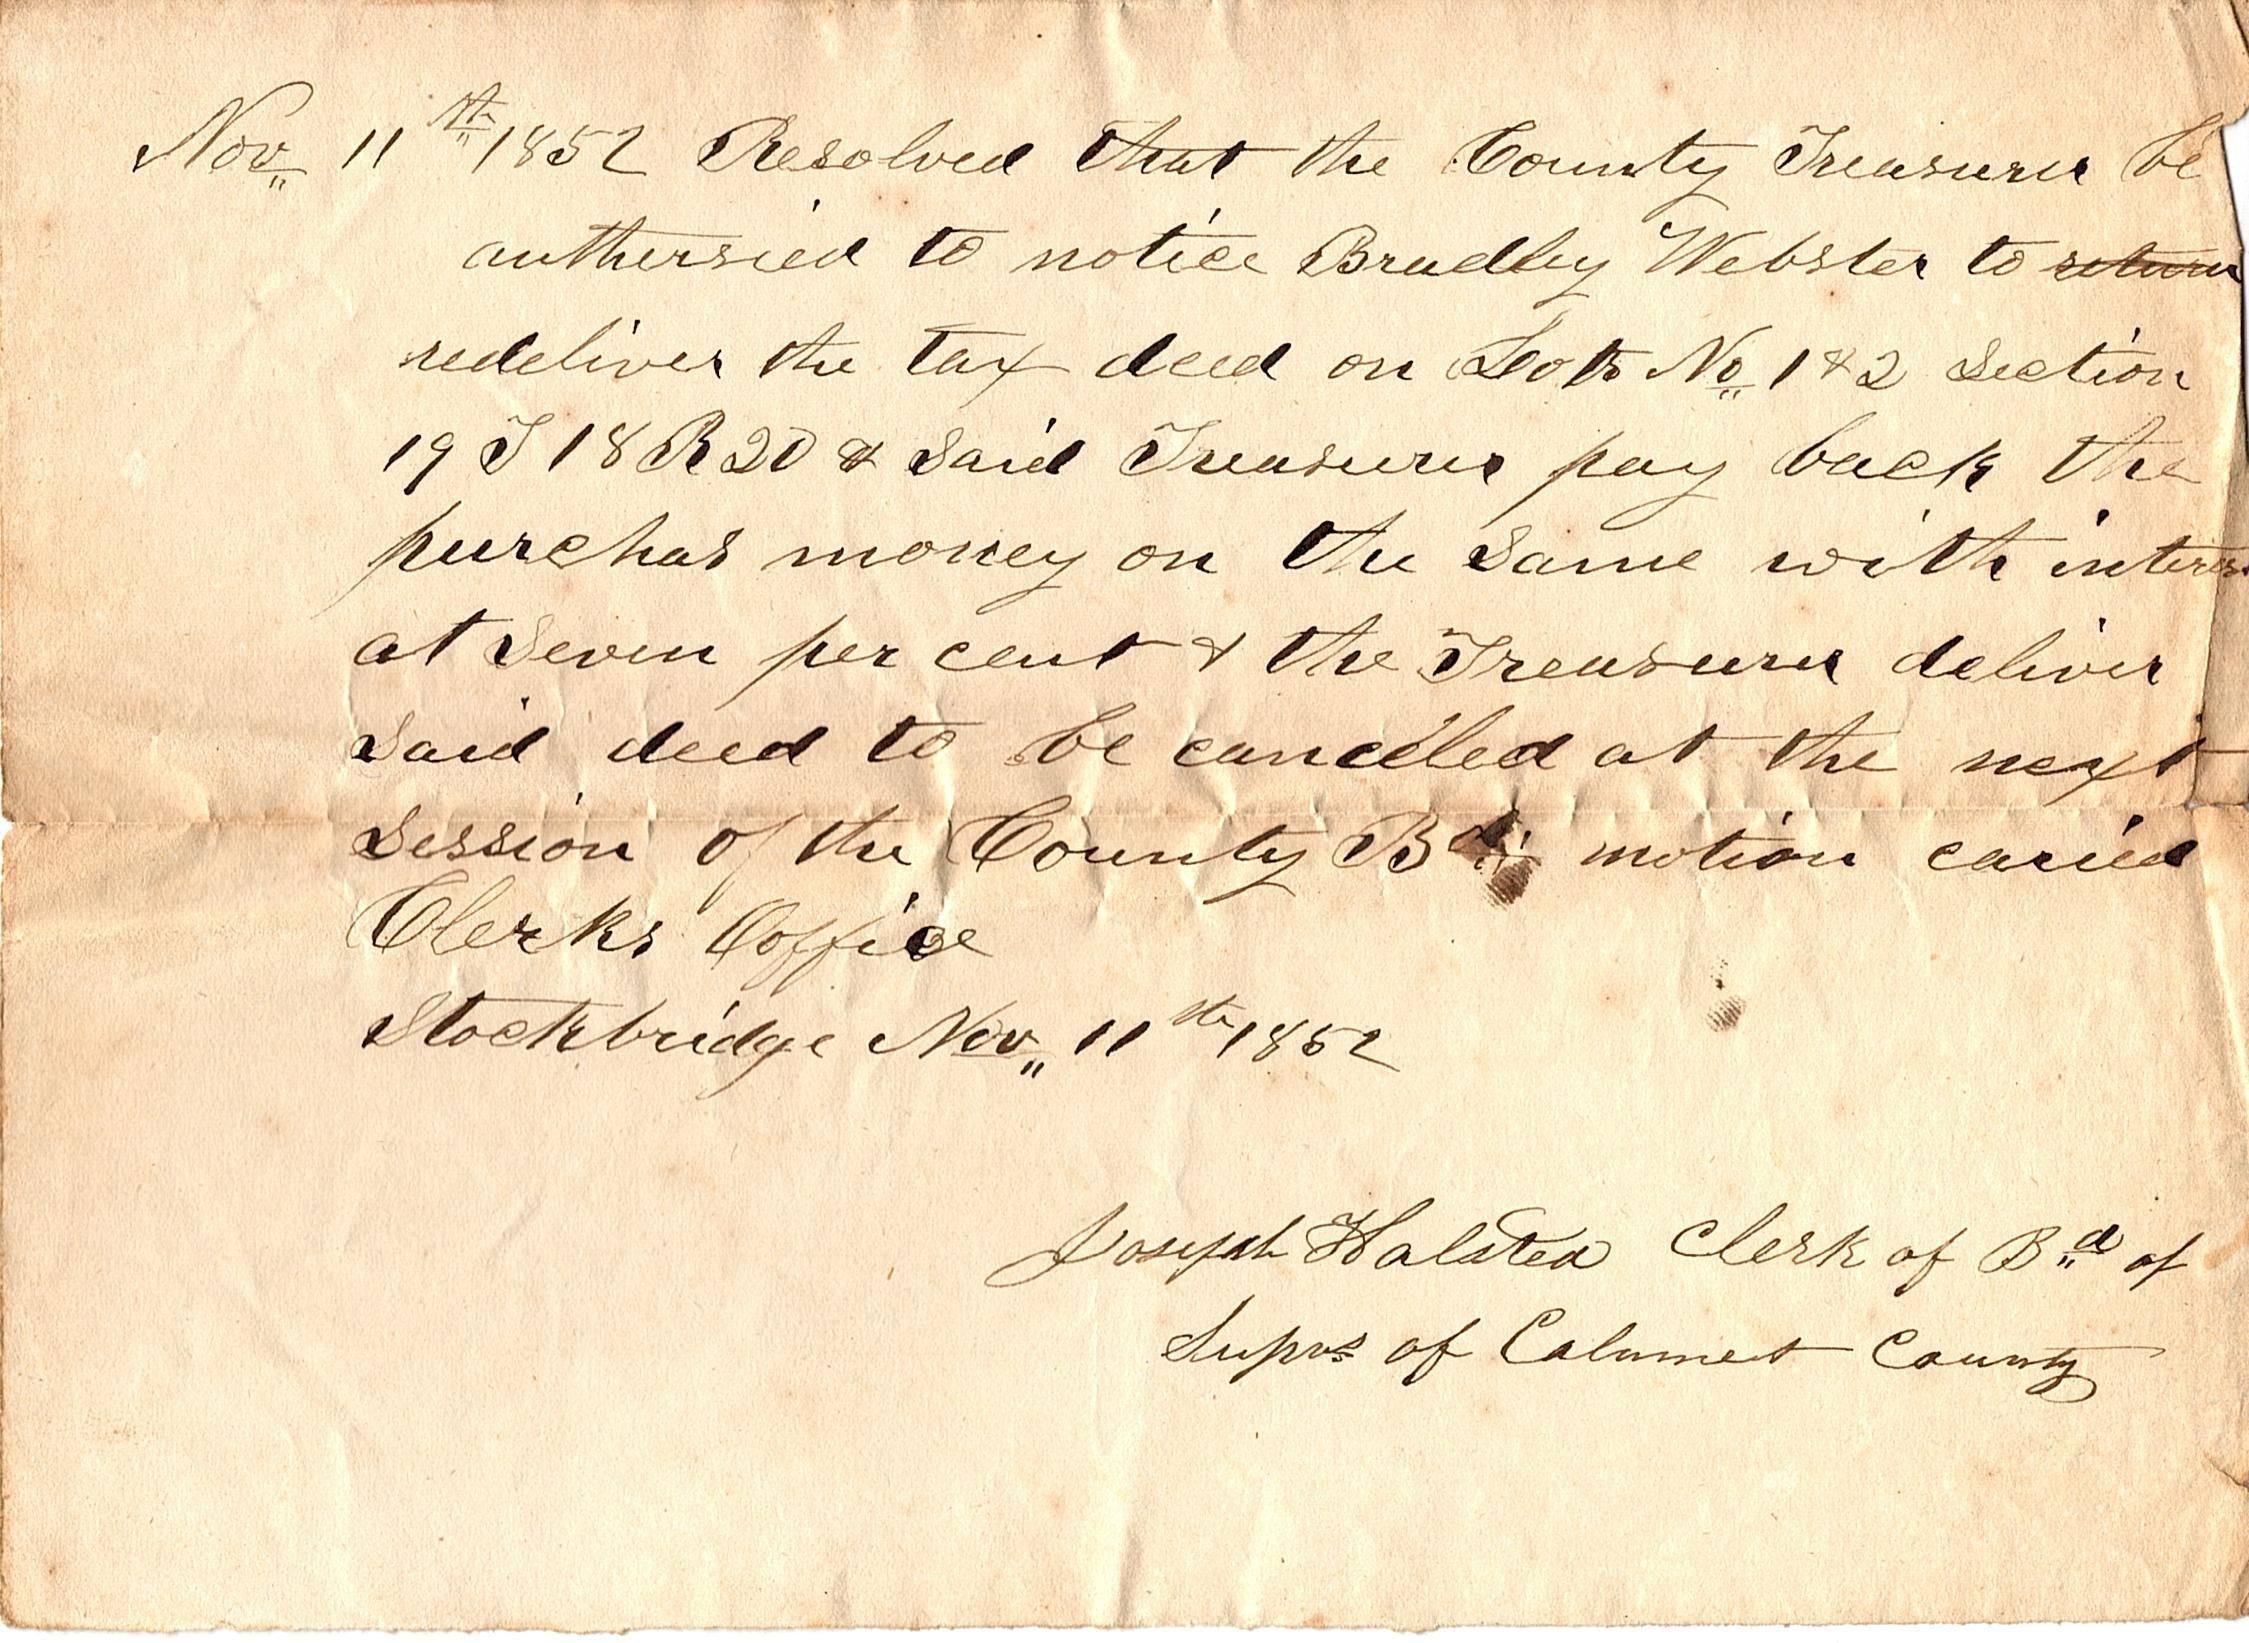 Nov 11th 1852 Resolved that the County Treasurer be
authersied to notice Bradley Webster to return
redeliver the tax deed on Lots No 1 & 2 Section
19 T 18 R 20 & Said Treasurer pay back the
purchas money on the Same with interes
at Seven per cent & the Treasurer deliver
Said deed to be canceled at the next
Session of the County Bd motion caried
Clerks Office
Stockbridge Nov 11th 1852
Joseph Halsted Clerk of Bd of
Suprs of Calumet County